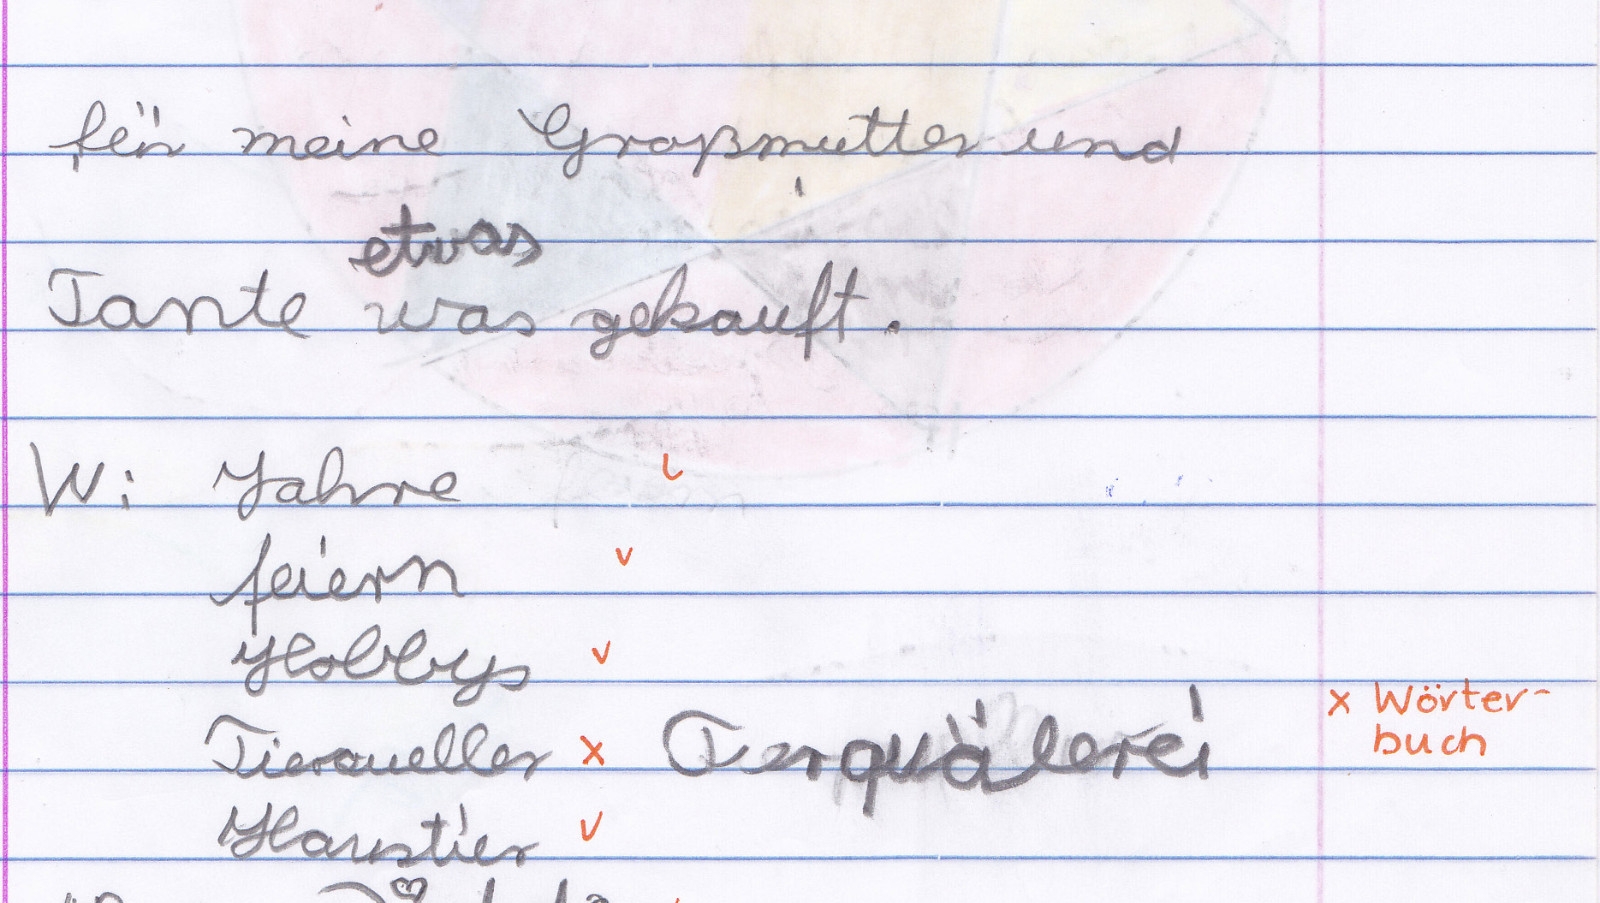 für meine Großmutter und
etwas
Tante was gekauft.
W: Jahre
feiern
Hobbys
Tierqueller x Terquälerei
x Wörter-
buch
Haustier